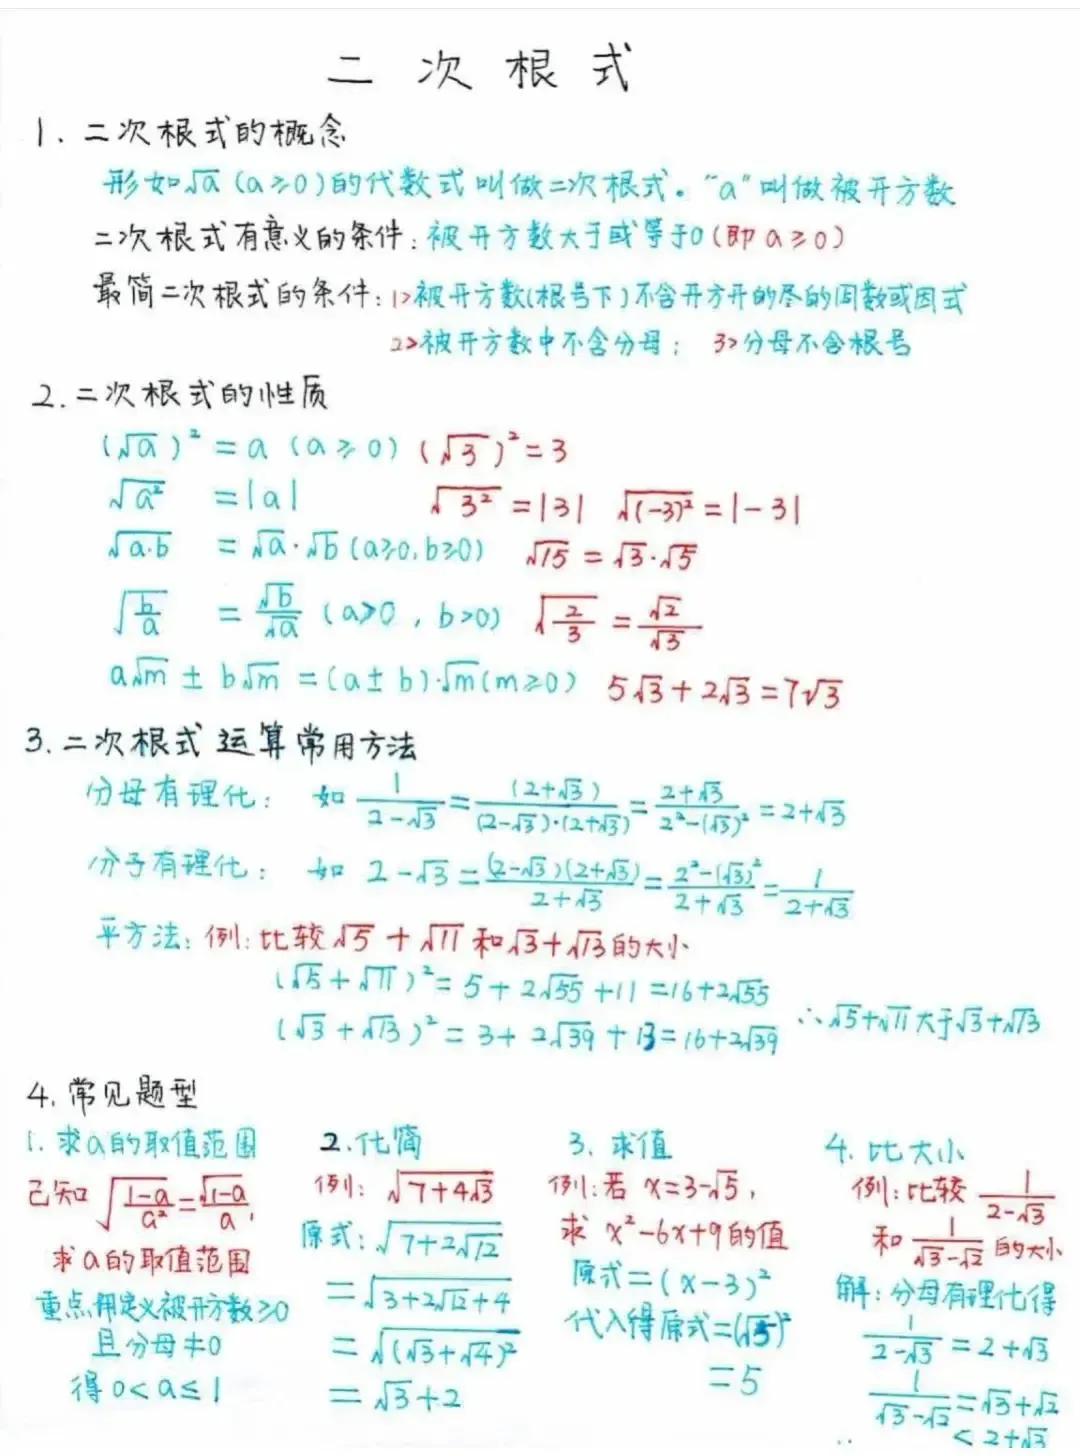 二次根式
1. 二次根式的概念
形如√a (a≥0)的代数式叫做二次根式。"a"叫做被开方数
二次根式有意义的条件:被开方数大于或等于0(即a≥0)
最简二次根式的条件:1>被开方数(根号下)不含开方开的尽的因数或因式
2>被开方数中不含分母; 3>分母不含根号
2. 二次根式的性质
(√a)² = a (a≥0) (√3)² = 3
√a² = |a| √3² = |3| √(-3)² = |-3|
√a·b = √a·√b (a≥0,b≥0) √15 = √3·√5
√(b/a) = √b/√a (a>0, b>0) √(2/3) = √2/√3
a√m ± b√m = (a±b)·√m (m≥0) 5√3+2√3=7√3
3. 二次根式运算常用方法
分母有理化: 如 1/(2-√3) = (2+√3)/((2-√3)·(2+√3)) = (2+√3)/(2²-(√3)²) = 2+√3
分子有理化: 如 2-√3 = (2-√3)(2+√3)/(2+√3) = (2²-(√3)²)/(2+√3) = 1/(2+√3)
平方法:例:比较√5+√11和√3+√13的大小
(√5+√11)² = 5+2√55+11 = 16+2√55
(√3+√13)² = 3+2√39+13 = 16+2√39 ∴√5+√11大于√3+√13
4. 常见题型
1. 求a的取值范围
已知√((1-a)/a²) = √(1-a)/a,
求a的取值范围
重点用定义被开方数≥0
且分母≠0
得0<a≤1
2. 化简
例: √(7+4√3)
原式:√(7+2√12)
= √(3+2√12+4)
= √((√3+√4)²)
= √3+2
3. 求值
例:若x=3-√5,
求x²-6x+9的值
原式=(x-3)²
代入得原式=(√5)²
=5
4. 比大小
例:比较 1/(2-√3)
和 1/(√3-√2) 的大小
解:分母有理化得
1/(2-√3) = 2+√3
1/(√3-√2) = √3+√2
< 2+√3